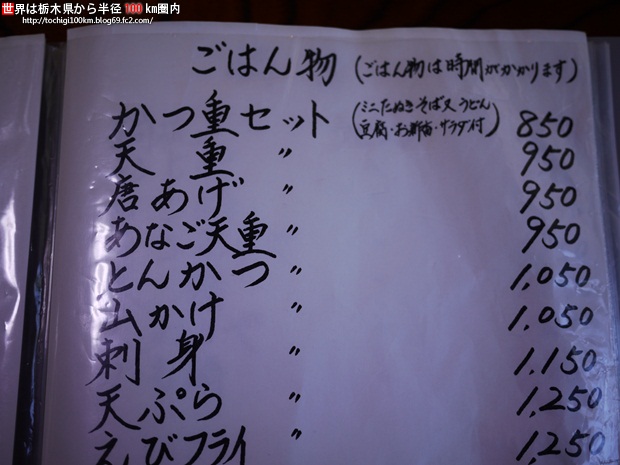 世界は栃木県から半径 100 km圏内
http://tochigi100km.blog69.fc2.com/
ごはん物 (ごはん物は時間がかかります)
かつ重セット (ミニたぬきそば又うどん 850
豆腐・お新香・サラダ付)
天重 〃 950
唐あげ 〃 950
あなご天重 〃 950
とんかつ 〃 1,050
山かけ 〃 1,050
刺身 〃 1,150
天ぷら 〃 1,250
えびフライ 〃 1,250